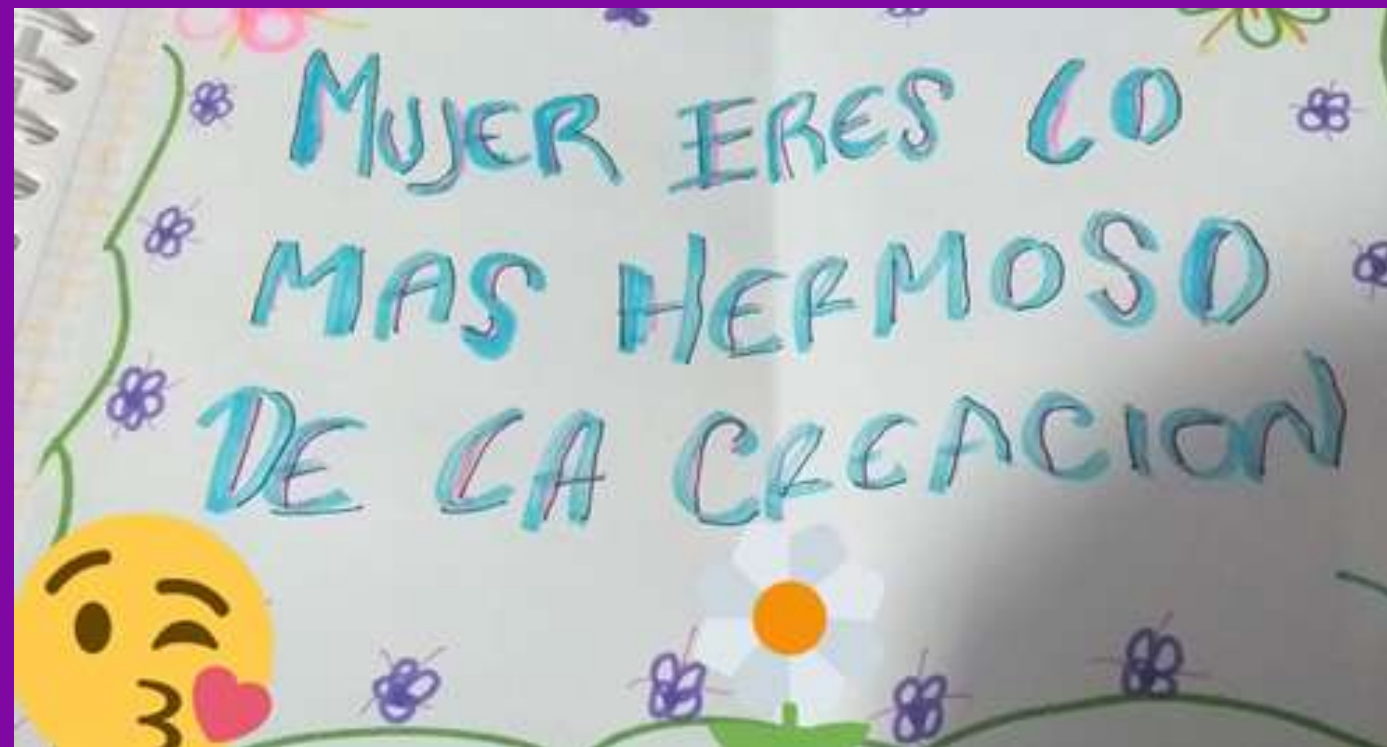 MUJER ERES LO
MAS HERMOSO
DE LA CREACION